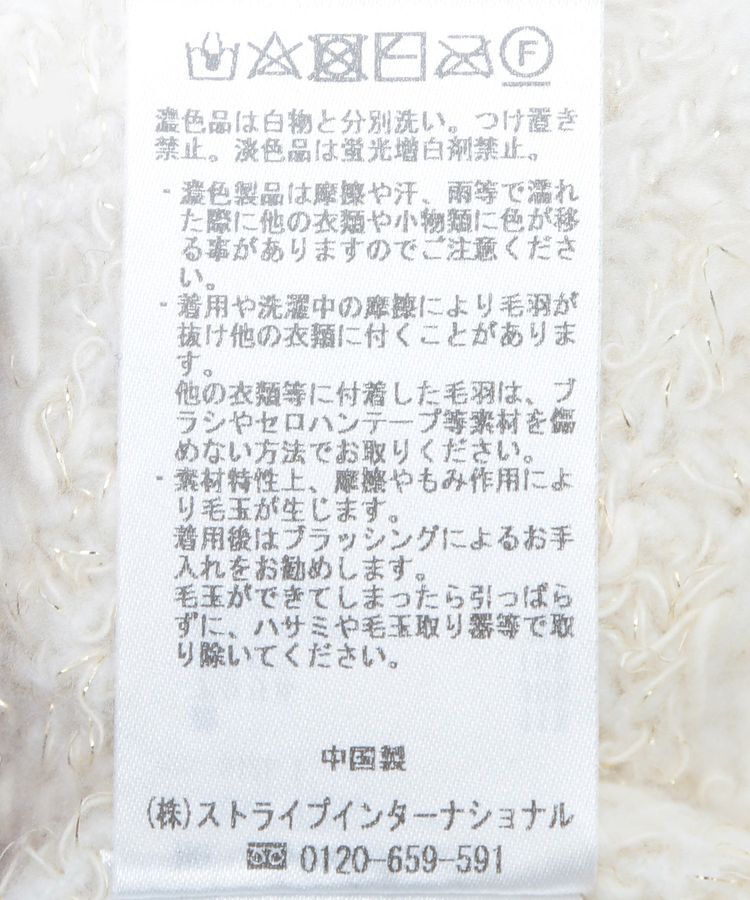 F
濃色品は白物と分別洗い。つけ置き
禁止。淡色品は蛍光増白剤禁止。
・濃色製品は摩擦や汗、雨等で濡れ
た際に他の衣類や小物類に色が移
る事がありますのでご注意くださ
い。
・着用や洗濯中の摩擦により毛羽が
抜け他の衣類に付くことがありま
す。
他の衣類等に付着した毛羽は、ブ
ラシやセロハンテープ等素材を傷
めない方法でお取りください。
・素材特性上、摩擦やもみ作用によ
り毛玉が生じます。
着用後はブラッシングによるお手
入れをお勧めします。
毛玉ができてしまったら引っぱら
ずに、ハサミや毛玉取り器等で取
り除いてください。
中国製
(株)ストライプインターナショナル
0120-659-591